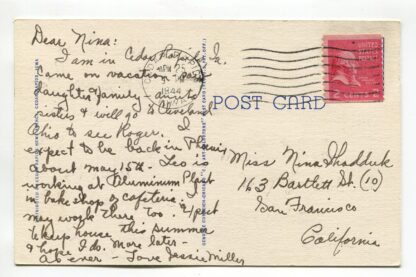 Dear Nina:
I am in Cedar Rapids, Ia.
Came on vacation part
daughter family, aunts
sisters & will go to Cleveland
Ohio to see Roger. I
expect to be back in Phoenix
about May 15th. Leo is
working at Aluminum Plant
in bake shop & cafeteria.
may work there too. Expect
to keep house this summer
& hope I do. More later -
As ever - Love Jessie Miller
APR 25
1944
UNITED
STATES
POSTAGE
2 CENTS 2
POST CARD
Miss Nina Shadduk
163 Bartlett St. (10)
San Francisco
California